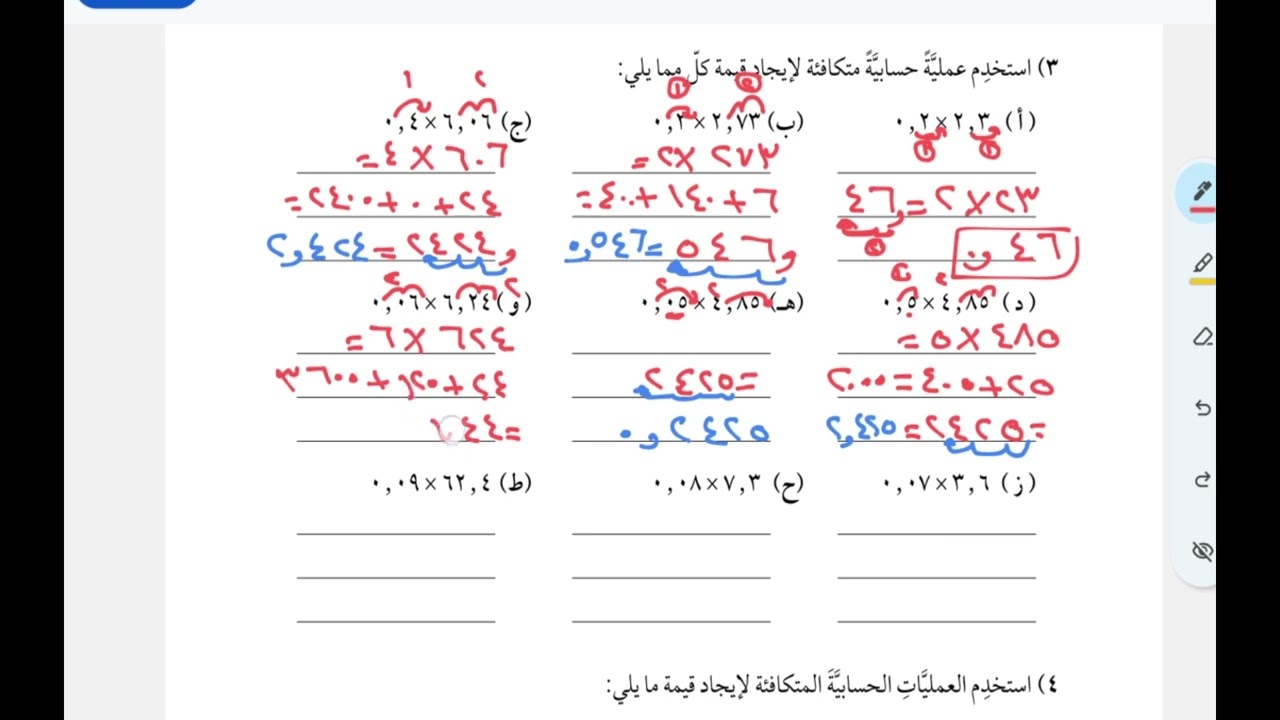 ٣) استخدِم عمليَّةً حسابيَّةً متكافئة لإيجاد قيمة كلّ مما يلي:
١ ٢
١ ٢
(أ) ٢,٣ × ٠,٢
١ ١
٢٣ × ٢ = ٤٦
٢
٠,٤٦
(ب) ٢,٧٣ × ٠,٢
٢٧٣ × ٢ =
٦ + ١٤٠ + ٤٠٠ =
٥٤٦ = ٠,٥٤٦
(ج) ٦,٠٦ × ٠,٤
٦٠٦ × ٤ =
٢٤ + ٠ + ٢٤٠٠ =
٢٤٢٤ = ٢,٤٢٤
(د) ٤,٨٥ × ٠,٥
٤٨٥ × ٥ =
٢٥ + ٤٠٠ = ٢٠٠٠
= ٢٤٢٥ = ٢,٤٢٥
(هـ) ٤,٨٥ × ٠,٠٥
= ٢٤٢٥
٠,٢٤٢٥
(و) ٦,٢٤ × ٠,٠٦
٦٢٤ × ٦ =
٢٤ + ١٢٠ + ٣٦٠٠
= ٤٤
(ز) ٣,٦ × ٠,٠٧
(ح) ٧,٣ × ٠,٠٨
(ط) ٦٢,٤ × ٠,٠٩
٤) استخدِم العمليَّاتِ الحسابيَّةَ المتكافئة لإيجاد قيمة ما يلي: